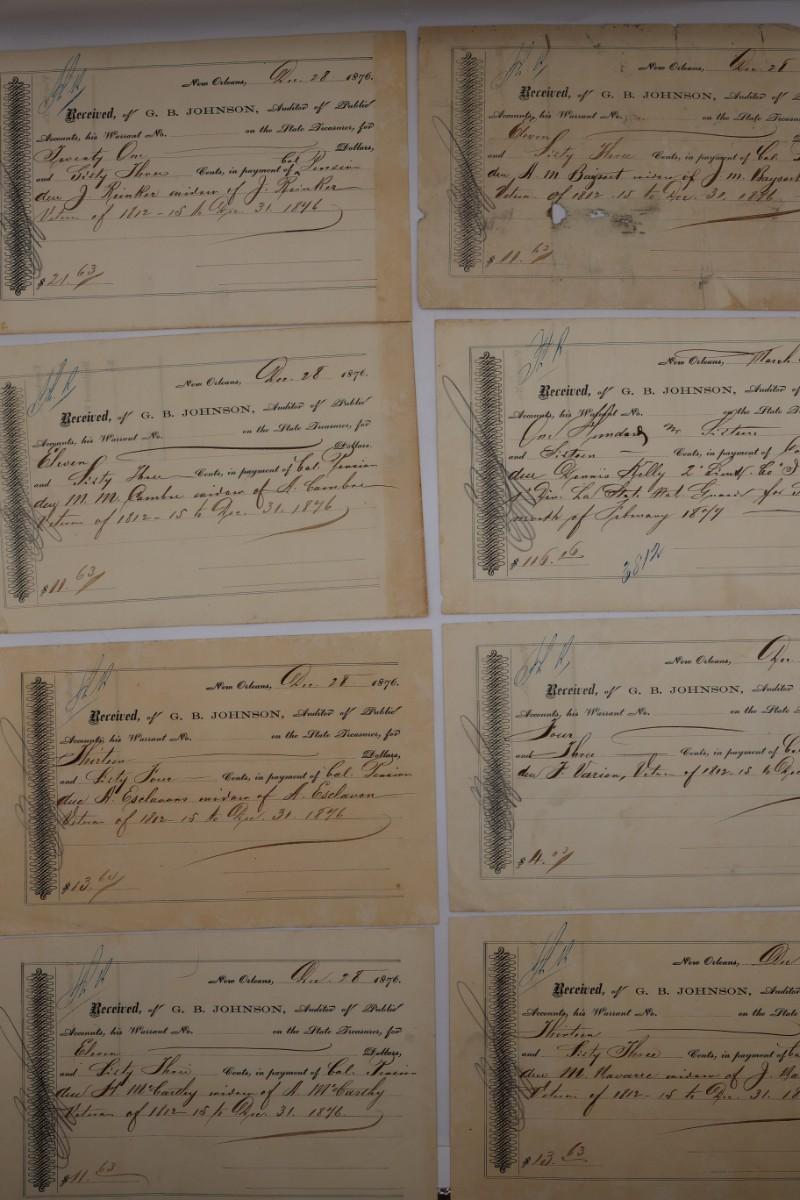 New Orleans, Dec. 28 1876.
Received, of G. B. JOHNSON, Auditor of Public
Accounts, his Warrant No. on the State Treasurer, for
Twenty One Dollars,
and Sixty Three Cents, in payment of Bal. Pension
due J Reinker widow of J. Reinker
Vetern of 1812-15 to Dec. 31. 1876
$21.63
New Orleans, Dec. 28 1876.
Received, of G. B. JOHNSON, Auditor of Public
Accounts, his Warrant No. on the State Treasurer, for
Eleven Dollars
and Sixty Three Cents, in payment of Bal. Pension
due M. M. Cambre widow of A. Cambre
Vetern of 1812-15 to Dec. 31. 1876
$11.63
New Orleans, Dec. 28 1876.
Received, of G. B. JOHNSON, Auditor of Public
Accounts, his Warrant No. on the State Treasurer, for
Thirteen Dollars,
and Sixty Four Cents, in payment of Bal. Pension
due A. Esclavons widow of A. Esclavon
Vetern of 1812-15 to Dec. 31. 1876
$13.64
New Orleans, Dec. 28 1876.
Received, of G. B. JOHNSON, Auditor of Public
Accounts, his Warrant No. on the State Treasurer, for
Eleven Dollars,
and Sixty Three Cents, in payment of Bal. Pension
due H McCarthy widow of A. McCarthy
Vetern of 1812-15 to Dec. 31. 1876
$11.63
New Orleans, Dec 28
Received, of G. B. JOHNSON, Auditor of
Accounts, his Warrant No. on the State Treasurer
Eleven
and Sixty Three Cents, in payment of Bal.
due A. M Baysset widow of J. M. Baysset
Vetern of 1812-15 to Dec. 31. 1876
$11.63
New Orleans, March
Received, of G. B. JOHNSON, Auditor of
Accounts, his Warrant No. on the State
One Hundred Sixteen
and Sixteen Cents, in payment of
due Dennis Kelly 2d Lieut. Co
1st Div. La State Nat Guard for
month of February 1877
$116.16
3812
New Orleans, Dec
Received, of G. B. JOHNSON, Auditor
Accounts, his Warrant No. on the State
Four
and Three Cents, in payment of
due F. Varion, Vetern of 1812-15 to Dec
$4.03
New Orleans, Dec
Received, of G. B. JOHNSON, Auditor
Accounts, his Warrant No. on the State
Thirteen
and Sixty Three Cents, in payment of
due M. Navarre widow of J.
Vetern of 1812-15 to Dec. 31.
$13.63